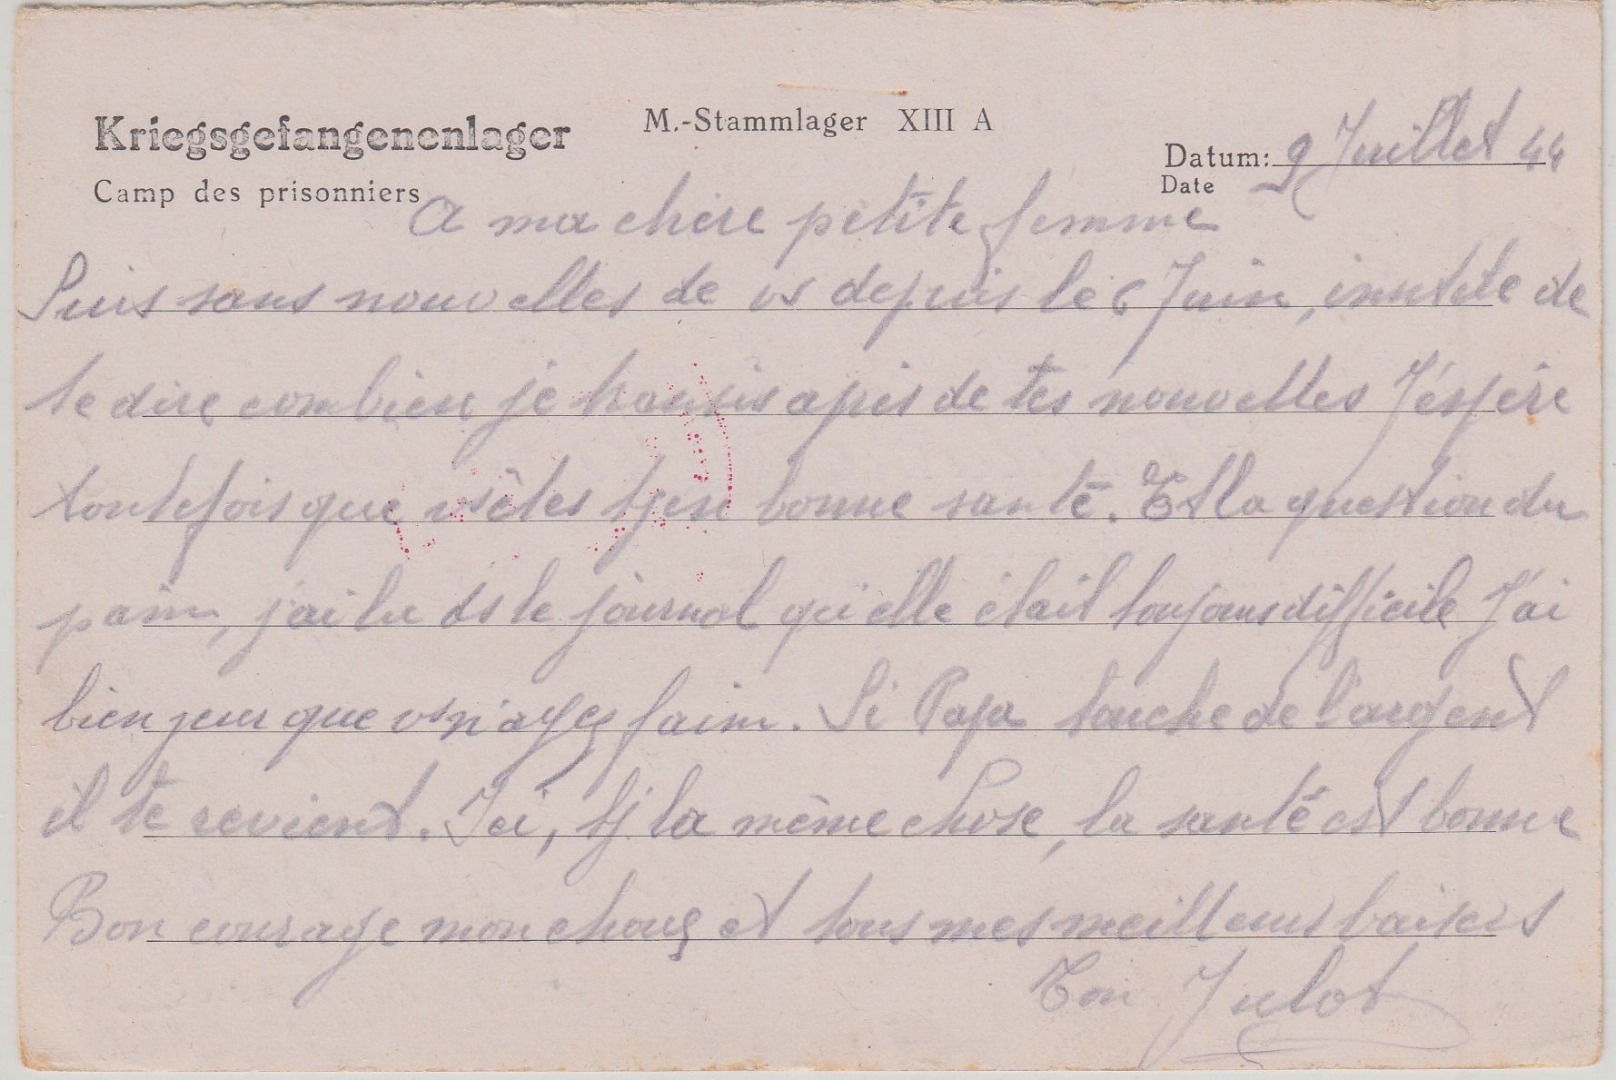 Kriegsgefangenenlager
M.-Stammlager XIII A
Datum: 9 Juillet 44
Camp des prisonniers
Date
A ma chère petite femme
Suis sans nouvelles de vs depuis le 6 Juin, inutile de
te dire combien je languis après de tes nouvelles J'éspère
toutefois que vs êtes tj en bonne santé. Et la question du
pain, j'ai lu ds le journal qu'elle était toujours difficile J'ai
bien peur que vs n'ayez faim. Si Papa touche de l'argent
il te revient. Ici, tj la même chose, la santé est bonne
Bon courage mon chouç et tous mes meilleurs baisers
Ton Julot